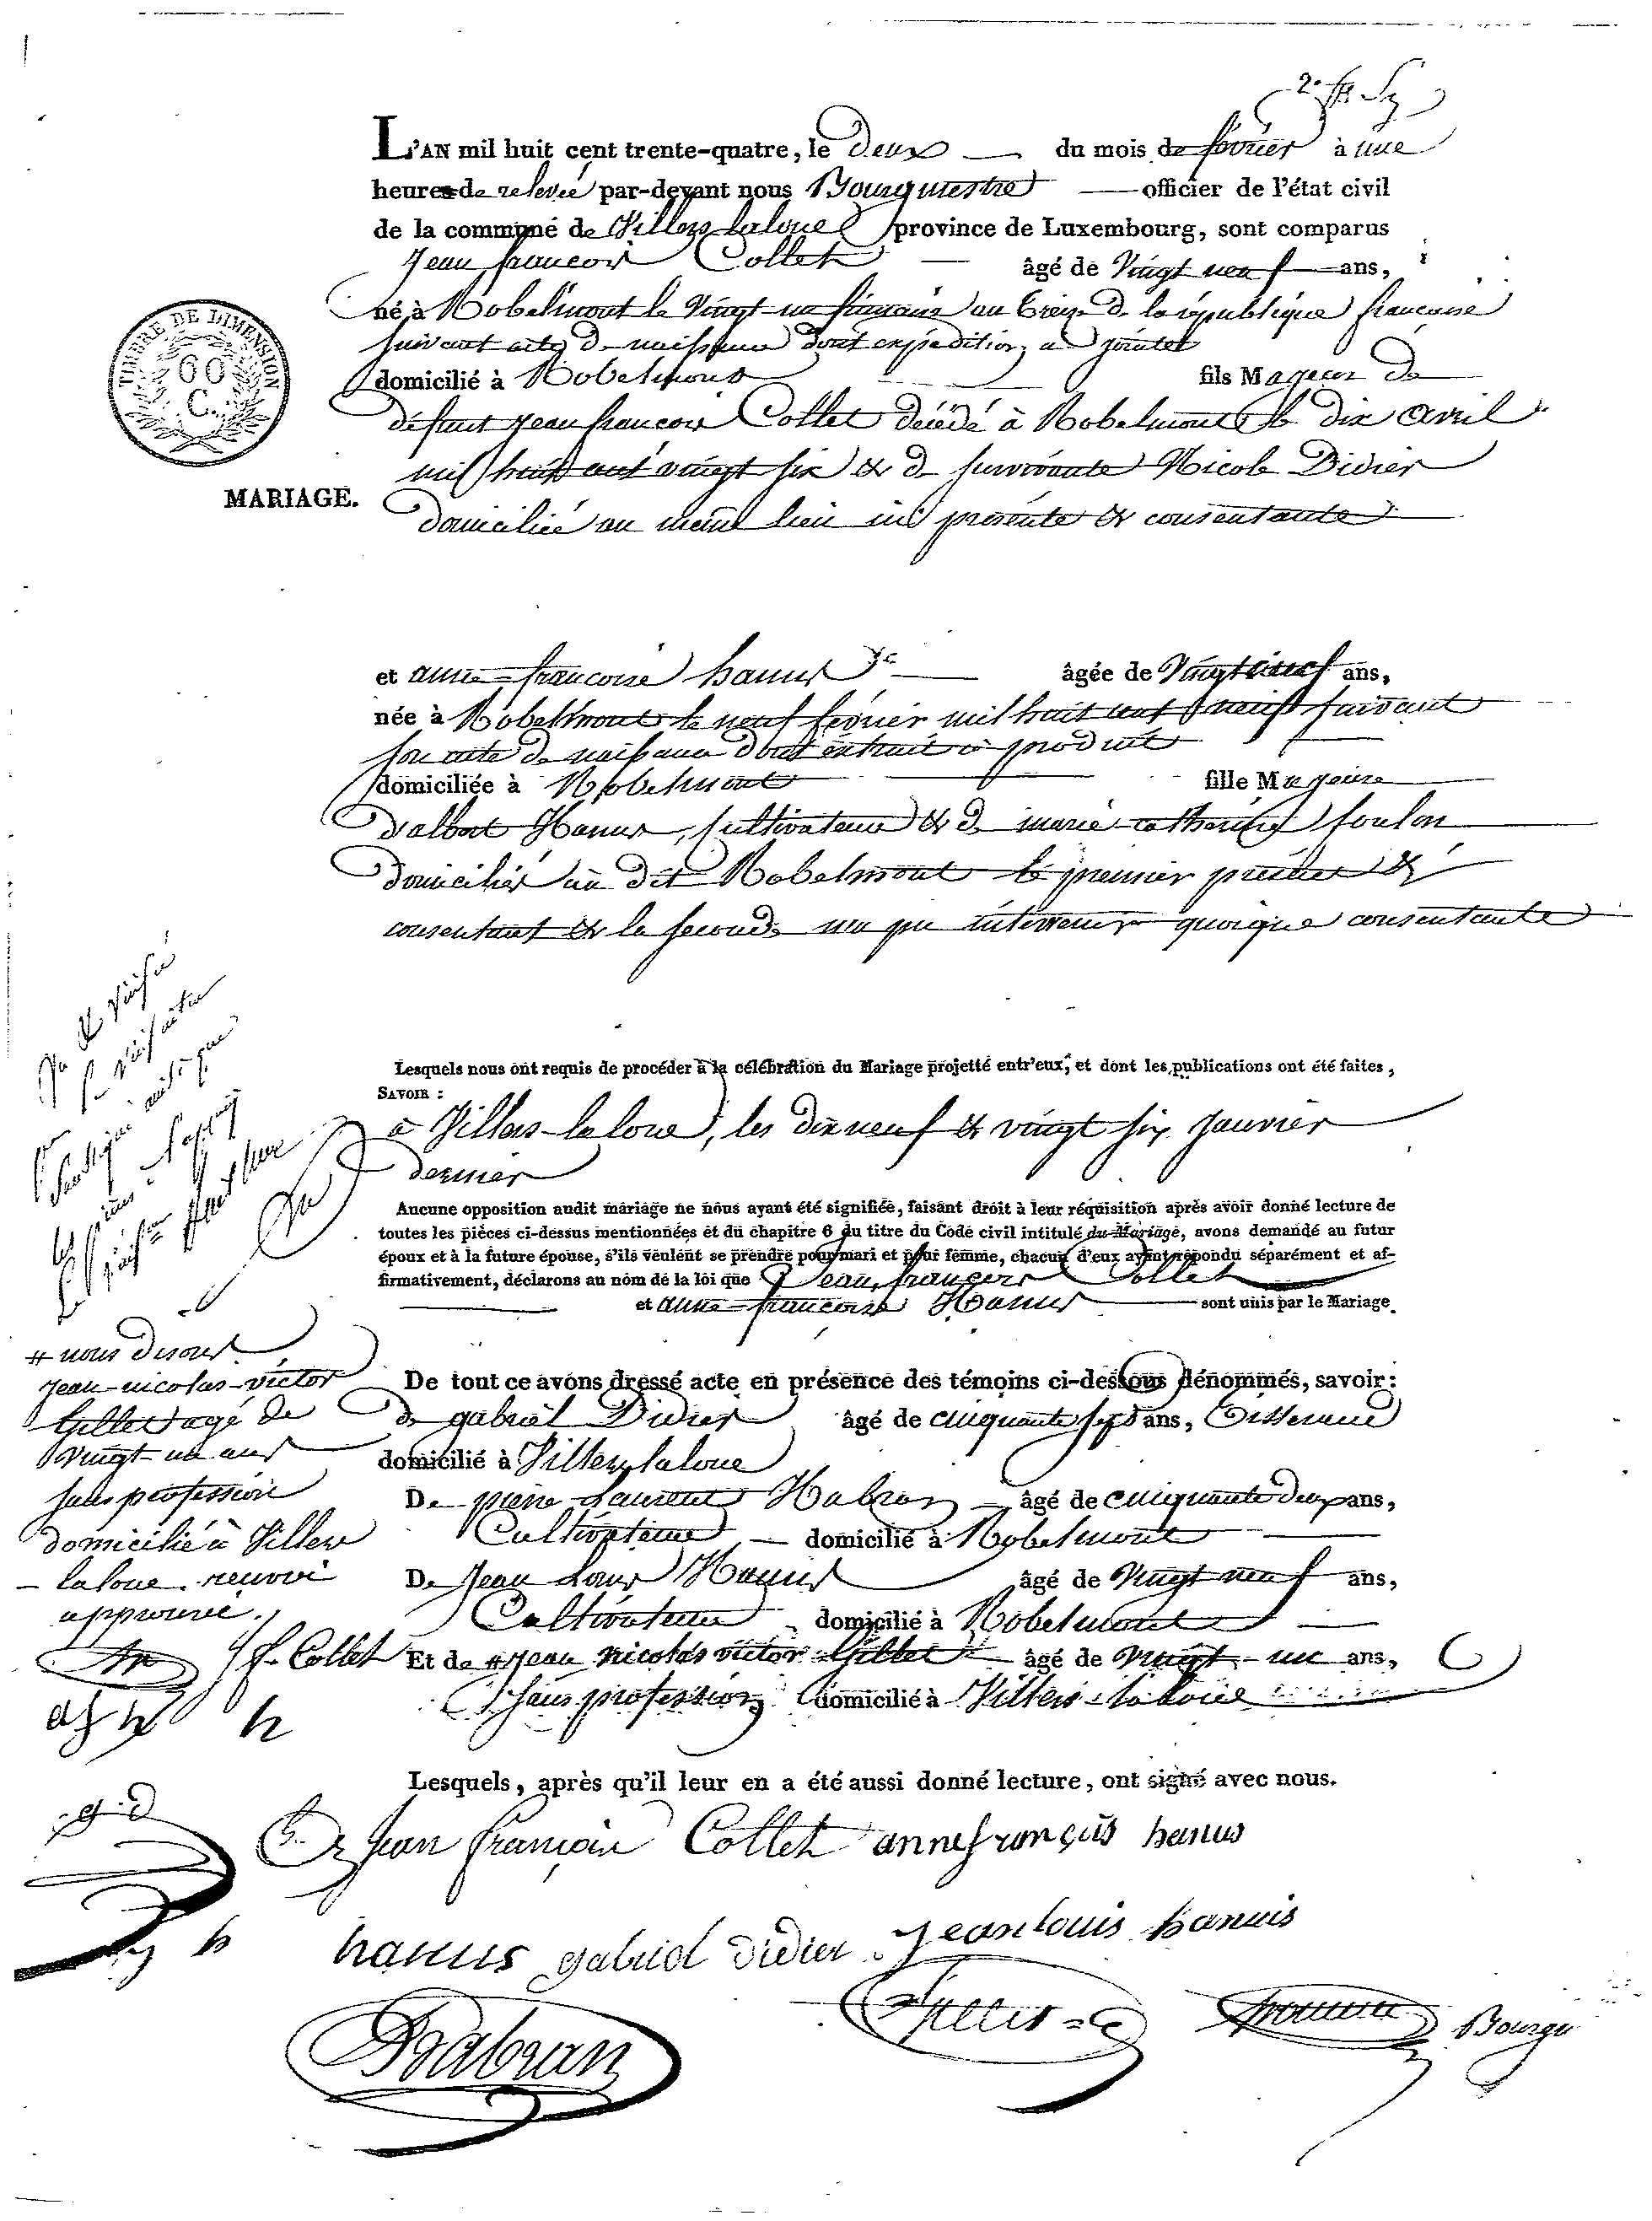 L'AN mil huit cent trente-quatre, le deux du mois de février à une
heure de relevée par-devant nous Bourguemestre officier de l'état civil
de la commune de Villers laloue province de Luxembourg, sont comparus
Jean françois Collet âgé de Vingt neuf ans,
né à Robelmont le Vingt un frimaire an treize de la république française
suivant acte de naissance dont expédition a jointe
TIMBRE DE DIMENSION
60
C.
domicilié à Robelmont fils Majeur de
défunt jean françois Collet décédé à Robelmont le dix avril
mil huit cent vingt six & de survivante Nicole Didier
MARIAGE.
domiciliée au même lieu ici présente & consentante
et anne françoise hanus âgée de Vingt cinq ans,
née à Robelmont le neuf février mil huit cent neuf suivant
son acte de naissance dont extrait a produit
domiciliée à Robelmont fille Majeure
d'albert Hanus, Cultivateur & de marie catherine foulon
domiciliés au dit Robelmont le premier présent &
consentant & la seconde n'a pu intervenir quoique consentante
Lesquels nous ont requis de procéder à la célébration du Mariage projetté entr'eux, et dont les publications ont été faites,
SAVOIR :
à Villers-laloue, les dix neuf & vingt six janvier
dernier
Aucune opposition audit mariage ne nous ayant été signifiée, faisant droit à leur réquisition après avoir donné lecture de
toutes les pièces ci-dessus mentionnées et du chapitre 6 du titre du Code civil intitulé du Mariage, avons demandé au futur
époux et à la future épouse, s'ils veulent se prendre pour mari et pour femme, chacun d'eux ayant répondu séparément et af-
firmativement, déclarons au nom de la loi que Jean françois Collet
et anne-françoise Hanus sont unis par le Mariage.
# nous disons
jean-nicolas-victor
Gillet agé de
vingt-un ans
sans profession
domicilié à Villers
-laloue. renvoi
approuvé.
f. Collet
De tout ce avons dressé acte en présence des témoins ci-dessous dénommés, savoir :
de gabriel Didier âgé de cinquante sept ans, Tisserand
domicilié à Villers laloue
De pierre Laurent Habran âgé de cinquante deux ans,
Cultivateur domicilié à Robelmont
De Jean Louis Hanus âgé de Vingt neuf ans,
Cultivateur domicilié à Robelmont
Et de # jean nicolas victor Gillet âgé de vingt-un ans,
Sans profession domicilié à Villers-laloue
Lesquels, après qu'il leur en a été aussi donné lecture, ont signé avec nous.
g. d
Jean françois Collet anne françois hanus
hanus gabriel didier jean louis hanus
Habran Gillet Bourgu